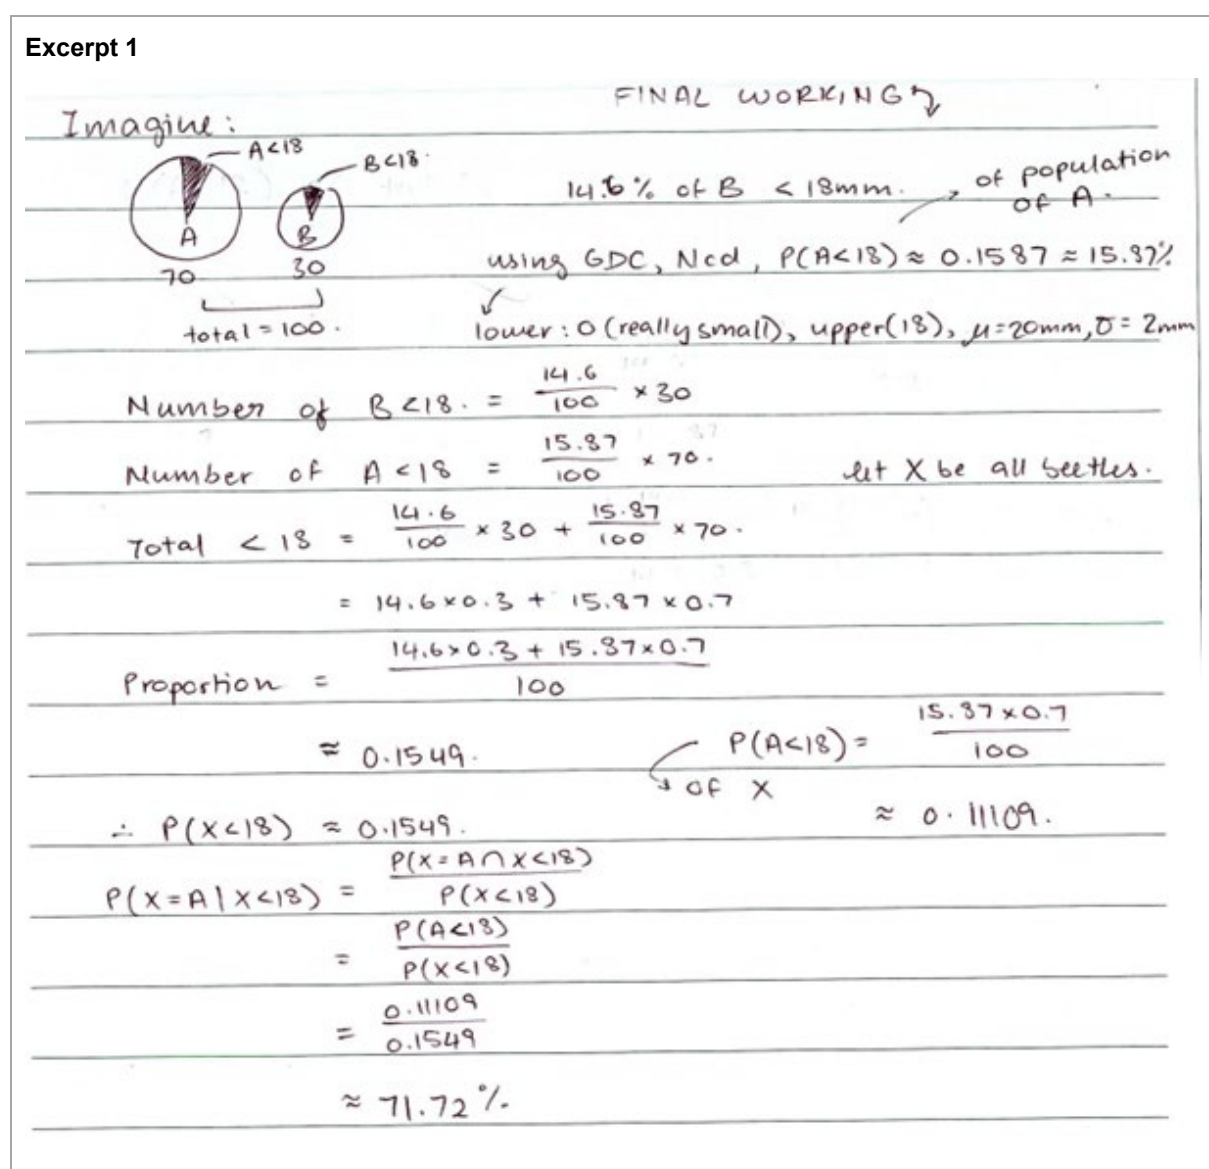 Excerpt 1
FINAL WORKING
Imagine:
A<18
B<18.
14.6% of B < 18mm.
of population of A.
A
B
70
30
using GDC, Ncd, P(A<18) ≈ 0.1587 ≈ 15.87%
total = 100.
lower: 0 (really small), upper(18), μ=20mm, σ=2mm
Number of B<18. = 14.6/100 × 30
Number of A<18 = 15.87/100 × 70.
let X be all beetles.
Total < 18 = 14.6/100 × 30 + 15.87/100 × 70.
= 14.6×0.3 + 15.87×0.7
Proportion = (14.6×0.3 + 15.87×0.7)/100
≈ 0.1549.
P(A<18) = (15.87×0.7)/100
of X
≈ 0.11109.
∴ P(X<18) ≈ 0.1549.
P(X=A|X<18) = P(X=A∩X<18)/P(X<18)
= P(A<18)/P(X<18)
= 0.11109/0.1549
≈ 71.72%